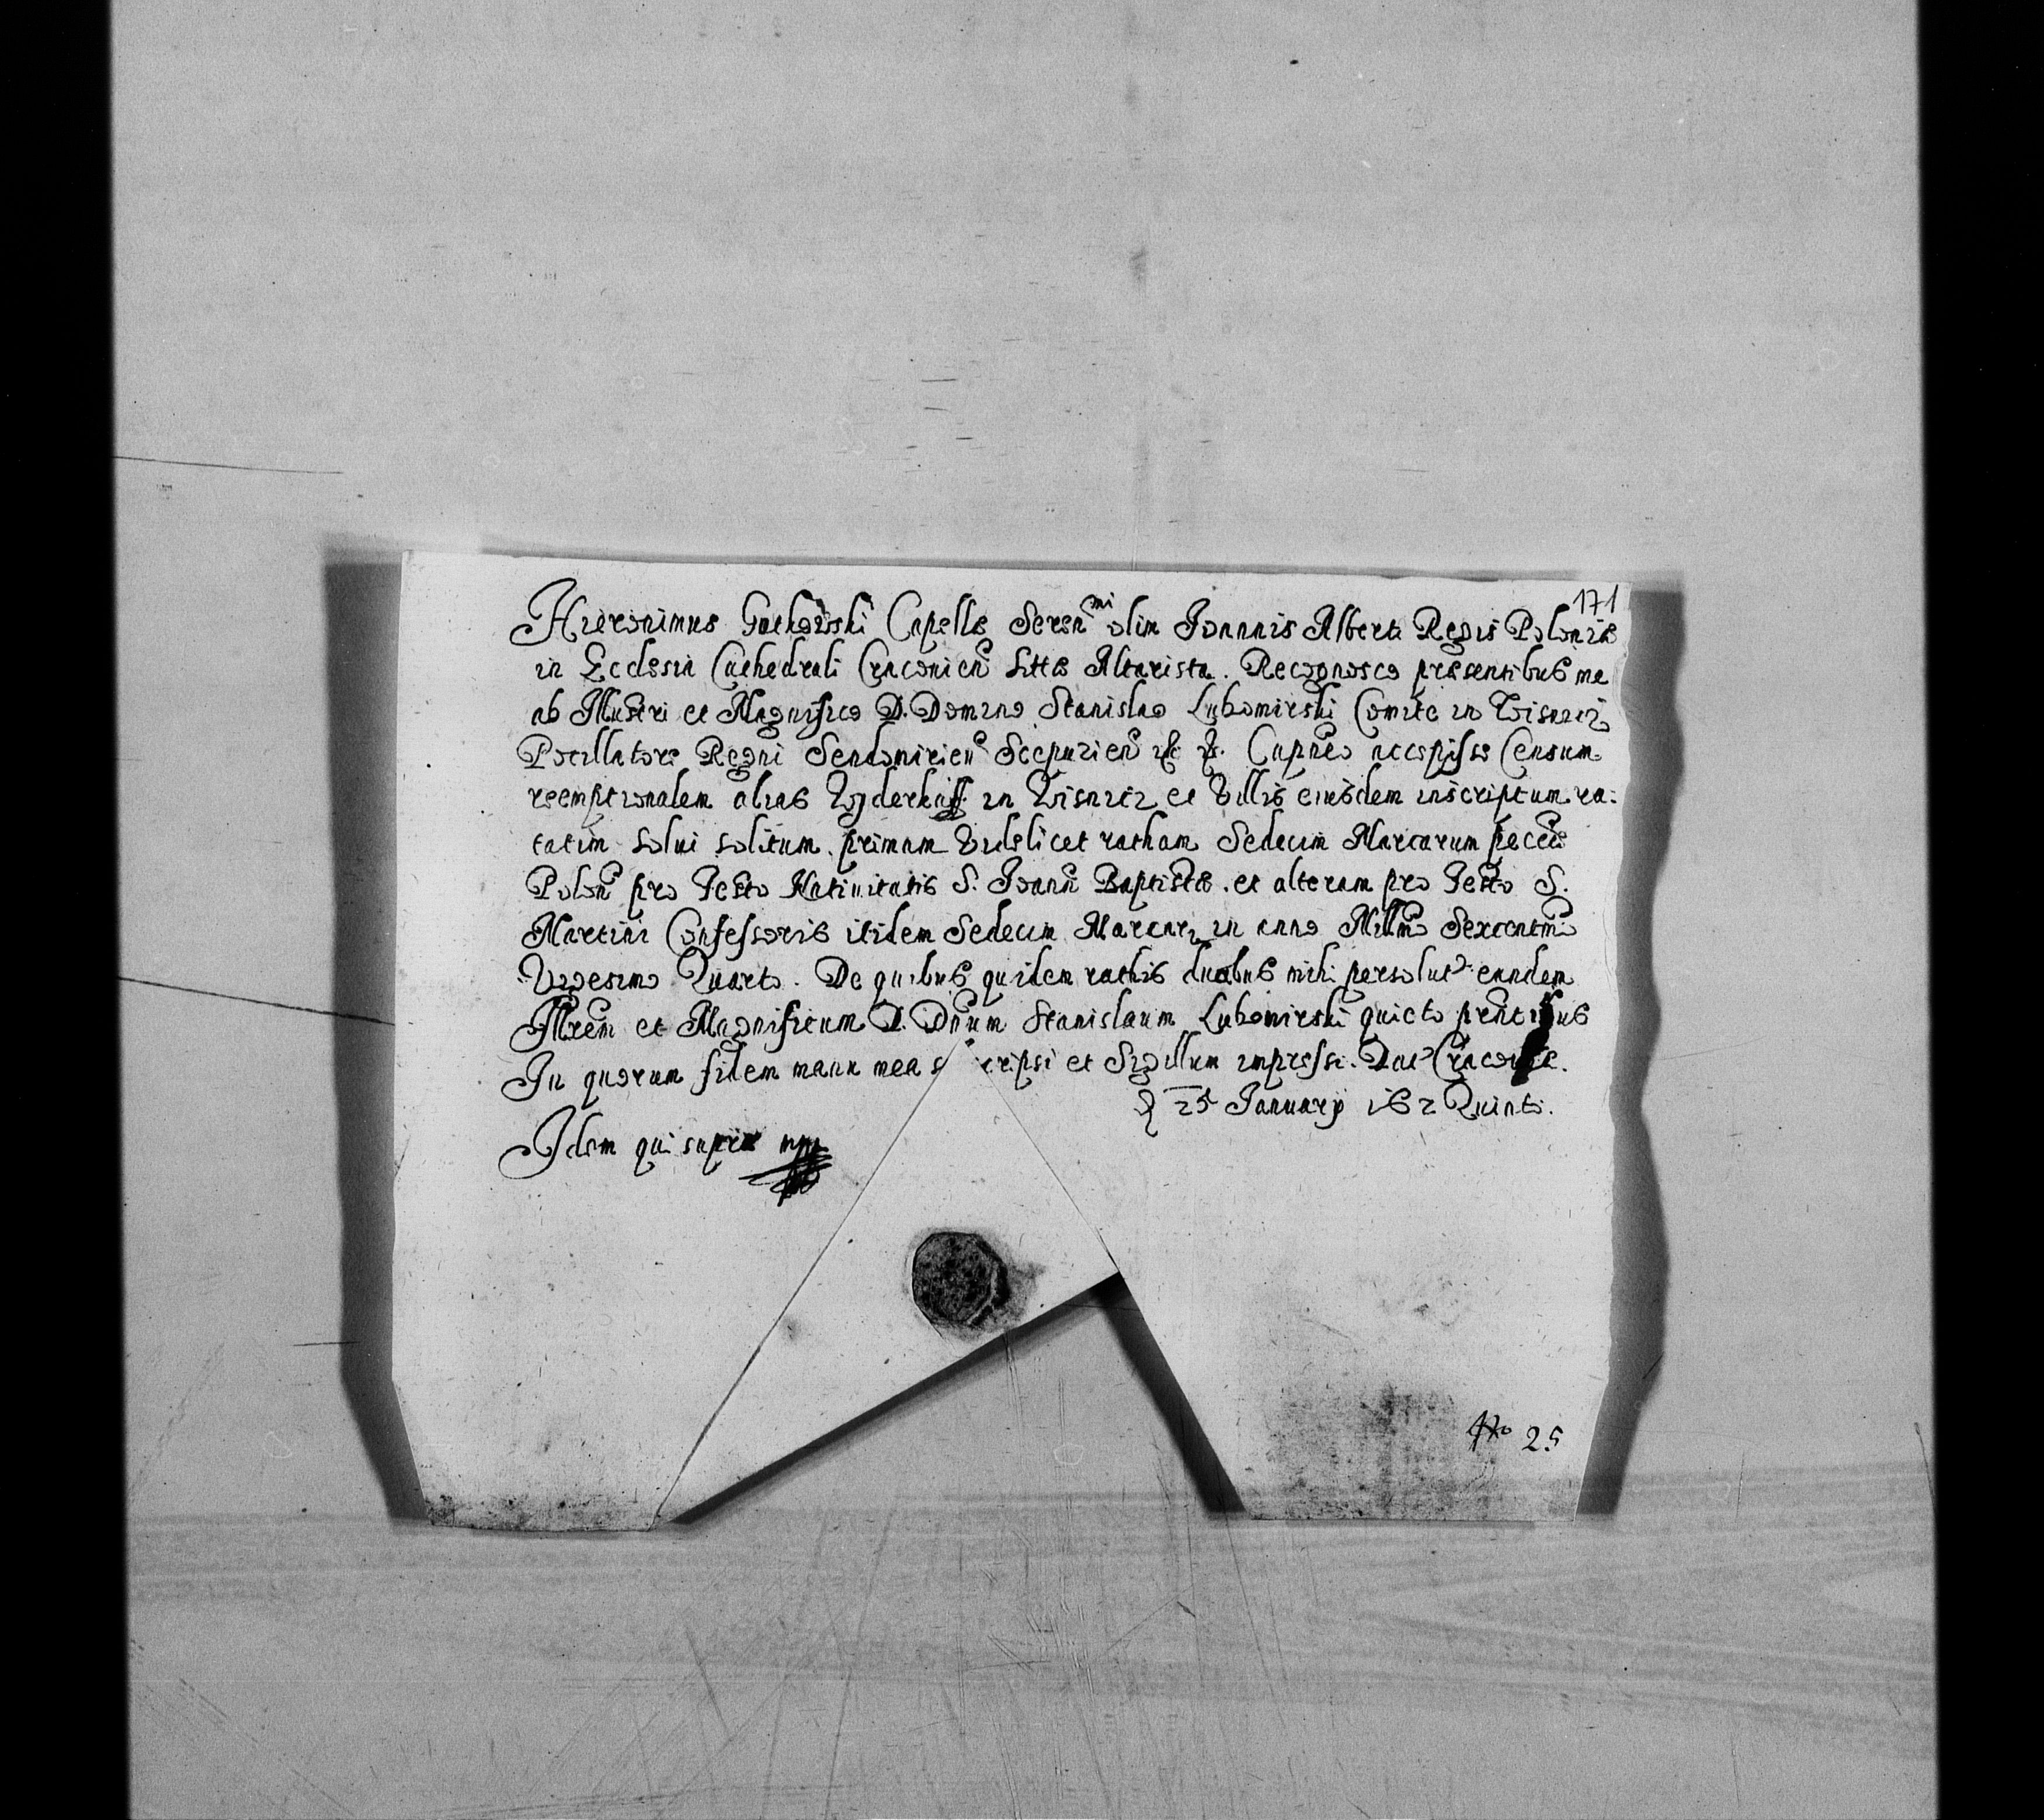 171
Hieronimus Capellæ Seren^mi olim Joannis Alberti Regis Poloniæ
in Ecclesia Cathedrali Cracovien̄ sittæ Altarista. Recognosco præsentibus me
ab Illustri et Magnifico D. Domino Stanislao Lubomirski Comite in Wisnicz
Pocillatore Regni Sendomirien̄ Scepuzien̄ Capneo accepisse Censum
reemptionalem alias Wyderkaff in Wisnicz et Villis eiusdem inscriptum ra:
tatim solui solitum. primam videlicet ratham Sedecim Marcarum pecun̄
Polon̄ pro Festo Natiuitatis S. Joann̄ Baptistæ. et alteram pro Festo S.
Martini Confessoris itidem Sedecim Marcar in anno Millm̄o Sexcentm̄o
Vigesimo Quarto. De quibus quidem rathis duabus mihi persolut eundem
Illrem et Magnificum D. Dn̄um Stanislaum Lubomirski quieto prn̄tibus
In quorum fidem manu mea s cripsi et Sigillum impressi. Dat Cracouiæ.
25 Januarij 162 Quinto.
Idem qui supra mpp
No 25